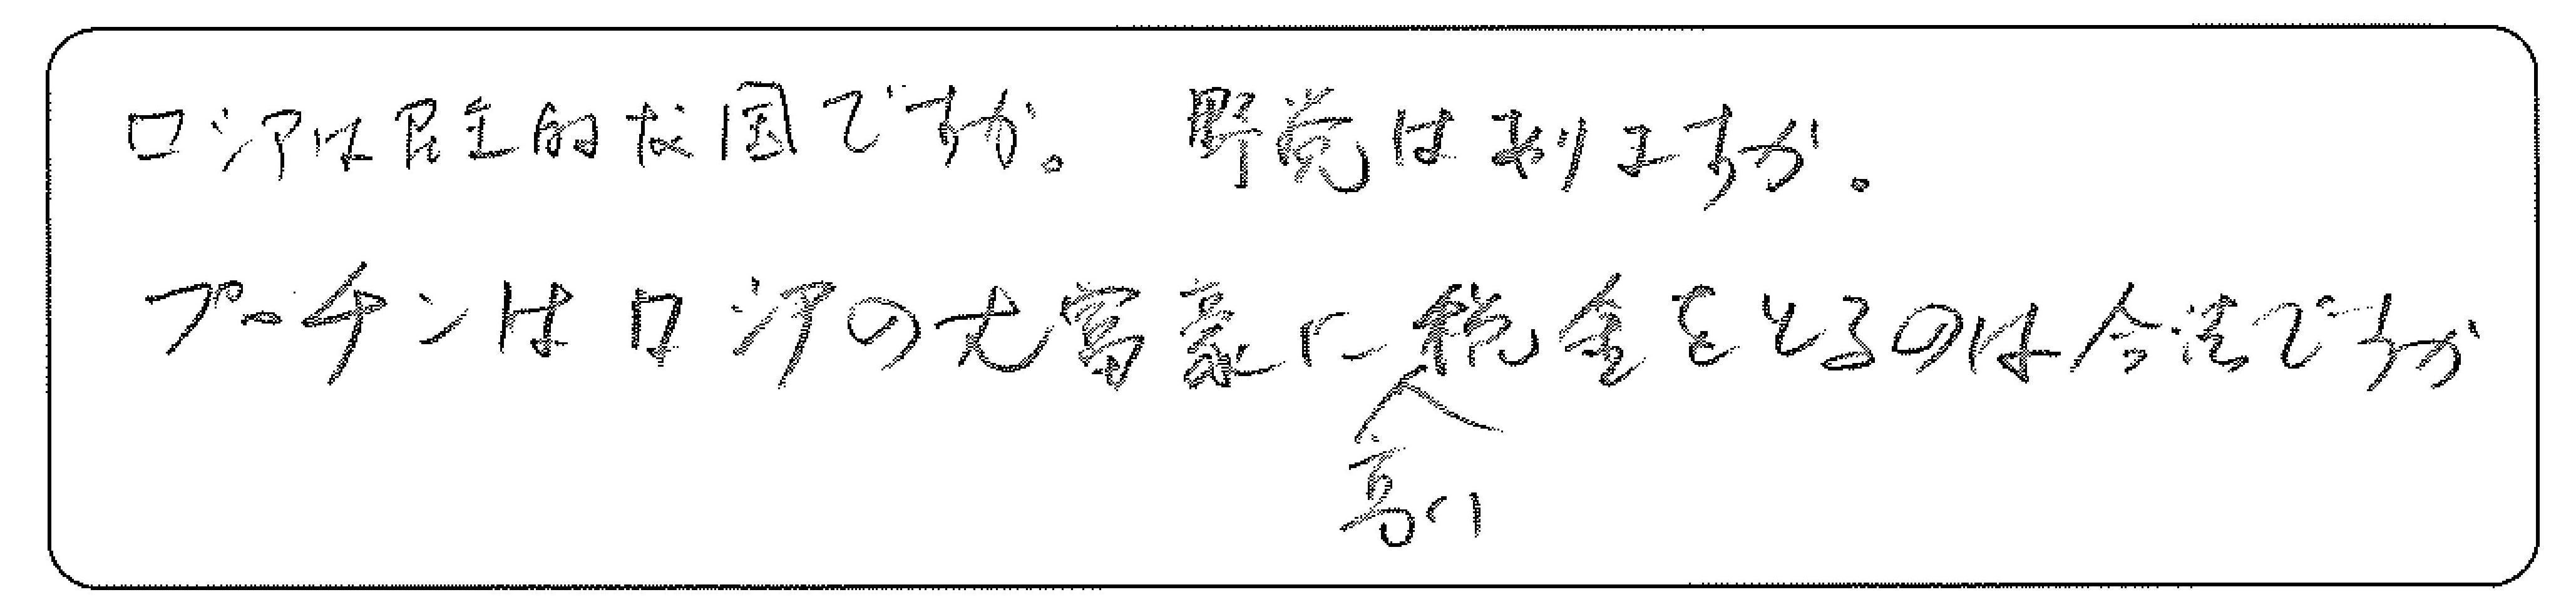 ロシアは民主的な国ですか。 野党はありますか。
プーチンはロシアの大富豪に高い税金をとるのは合法ですか